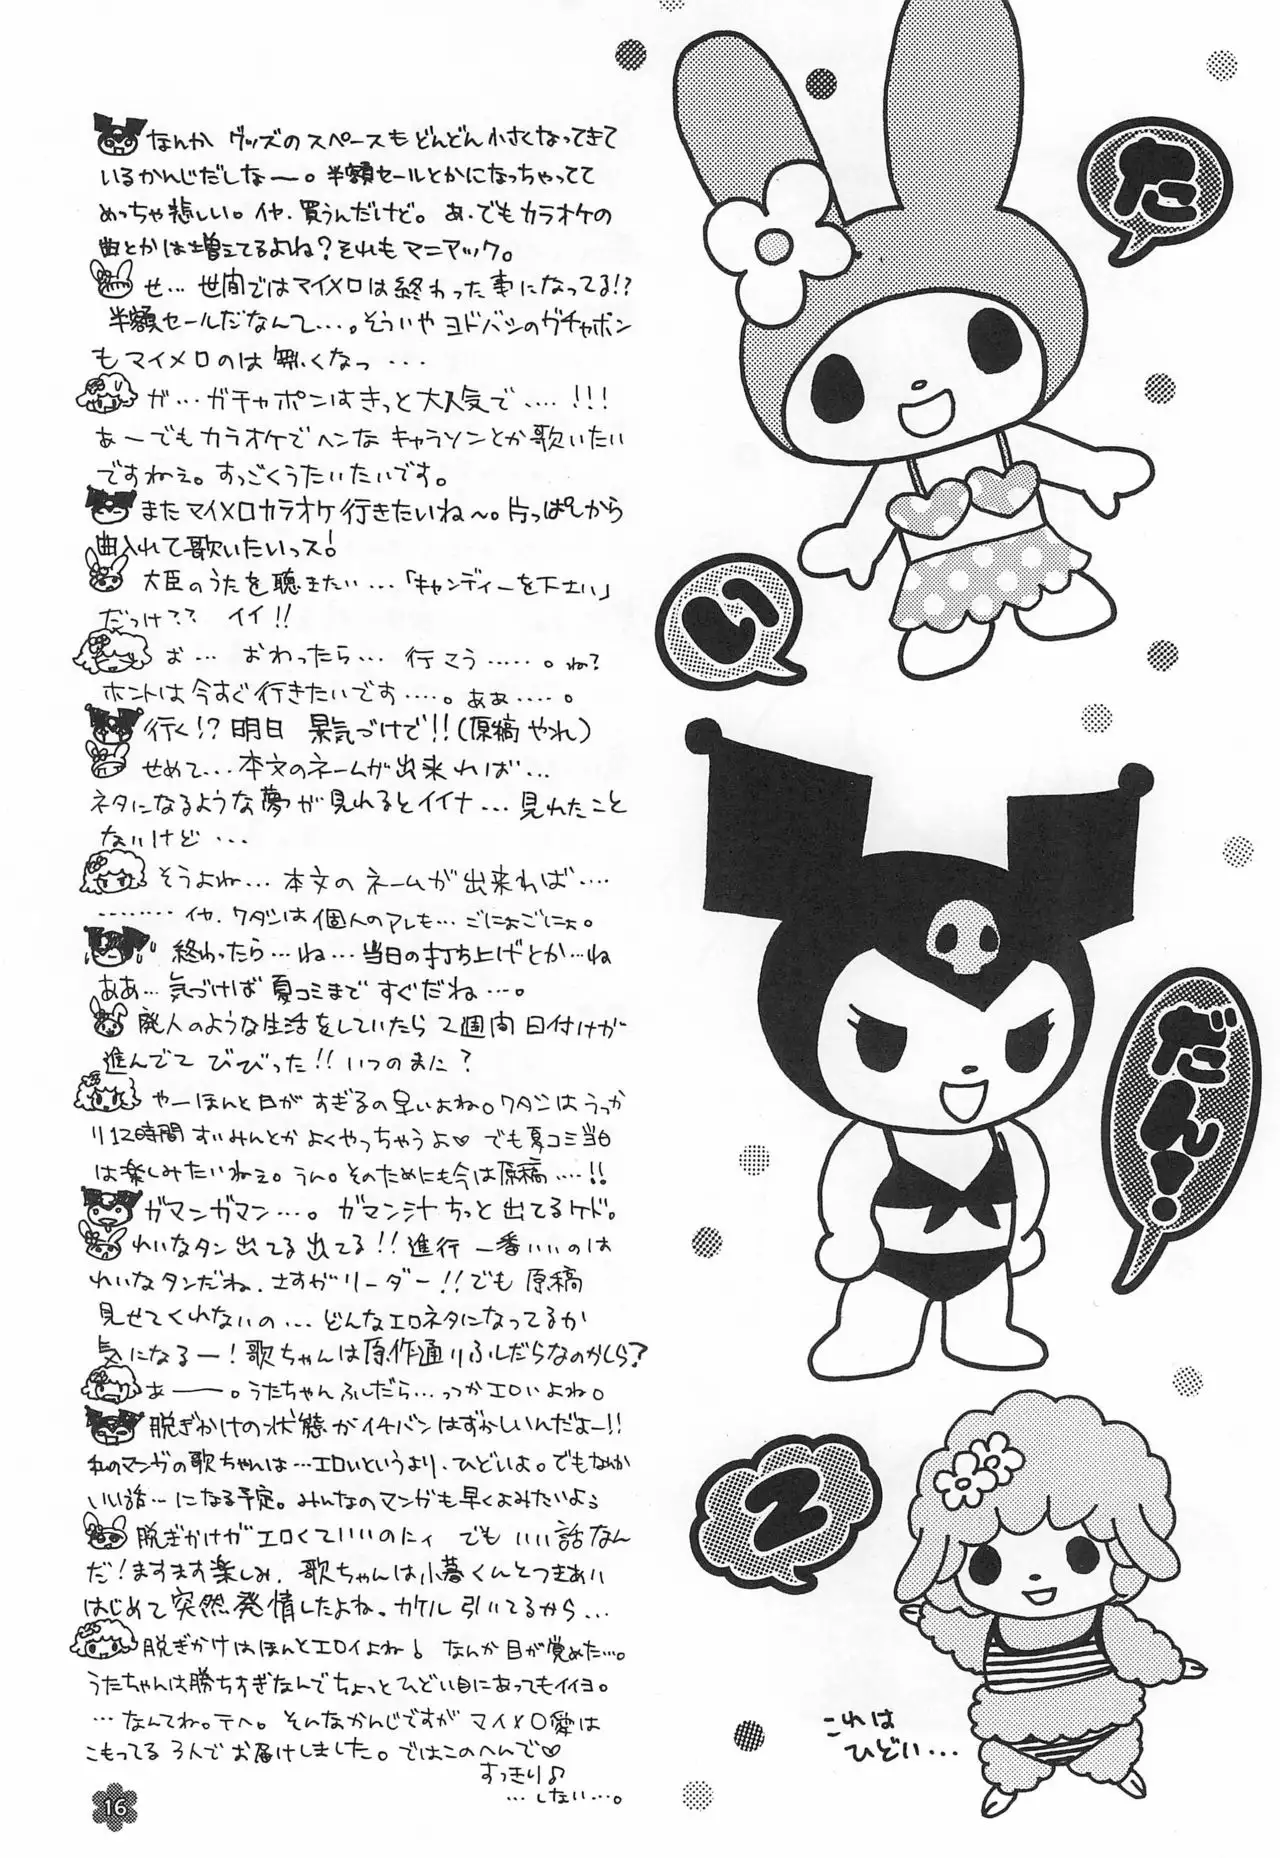 なんか グッズのスペースもどんどん小さくなってきて
いるかんじだしなー。半額セールとかになっちゃってて
めっちゃ悲しい。イヤ、買うんだけど。あ、でもカラオケの
曲とかは増えてるよね?それもマニアック。
せ…世間ではマイメロは終わった事になってる!?
半額セールだなんて…。そういやヨドバシのガチャポン
もマイメロのは無くなっ…
が…ガチャポンはきっと大人気で….!!!
あーでもカラオケでヘンなキャラソンとか歌いたい
ですねぇ。すっごくうたいたいです。
またマイメロカラオケ行きたいね〜。片っぱしから
曲入れて歌いたいっス!
大臣のうたを聴きたい…「キャンディーを下さい」
だっけ?? イイ!!
お… おわったら… 行こう……。ね?
ホントは今すぐ行きたいです….。ああ….。
行く!?明日 景気づけで!!(原稿やれ)
せめて…本文のネームが出来れば…
ネタになるような夢が見れるとイイナ…見れたこと
ないけど…
そうよね…本文のネームが出来れば….
……イヤ、ワダシは個人のアレも…ごにょごにょ。
終わったら…ね…当日の打ち上げとか…ね
ああ…気づけば夏コミまですぐだね…。
廃人のような生活をしていたら2週間日付けが
進んでて びびった!!いつのまに?
やーほんと日がすぎるの早いよね。ワダシはうっか
り12時間すいみんとかよくやっちゃうよ♡ でも夏コミ当日
は楽しみたいねぇ。うん。そのためにも今は原稿….!!
ガマンガマン…。ガマン汁ちっと出てるケド。
れいなタン出てる出てる!!進行一番いいのは
れいなタンだね、さすがリーダー!!でも原稿
見せてくれないの…どんなエロネタになってるか
気になるー!歌ちゃんは原作通りふしだらなのかしら?
あー。うたちゃんふしだら…っつかエロいよね。
脱ぎかけの状態がイチバンはずかしいんだよー!!
私のマンガの歌ちゃんは…エロいというより、ひどいよ。でもなんか
いい話…になる予定。みんなのマンガも早くよみたいよぅ
脱ぎかけがエロくていいのにィ でもいい話なん
だ!ますます楽しみ、歌ちゃんは小暮くんとつきあい
はじめて突然発情したよね。カケル引いてるから…
脱ぎかけはほんとエロイよね! なんか目が覚めた…。
うたちゃんは勝ちすぎなんでちょっとひどい目にあってもイイヨ。
…なんてね。テヘ。そんなかんじですがマイメロ愛は
こもってる3人でお届けしました。ではこのへんで♡
すっきり♪
…しない…。
16
た
い
だん!
2
これは
ひどい…